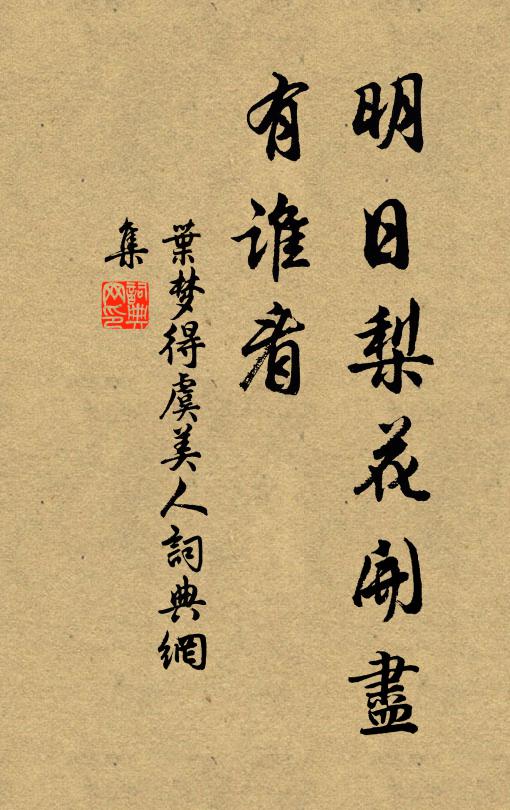 明日梨花開盡
有誰看
葉梦得虞美人詞典網
集
詞典
网印